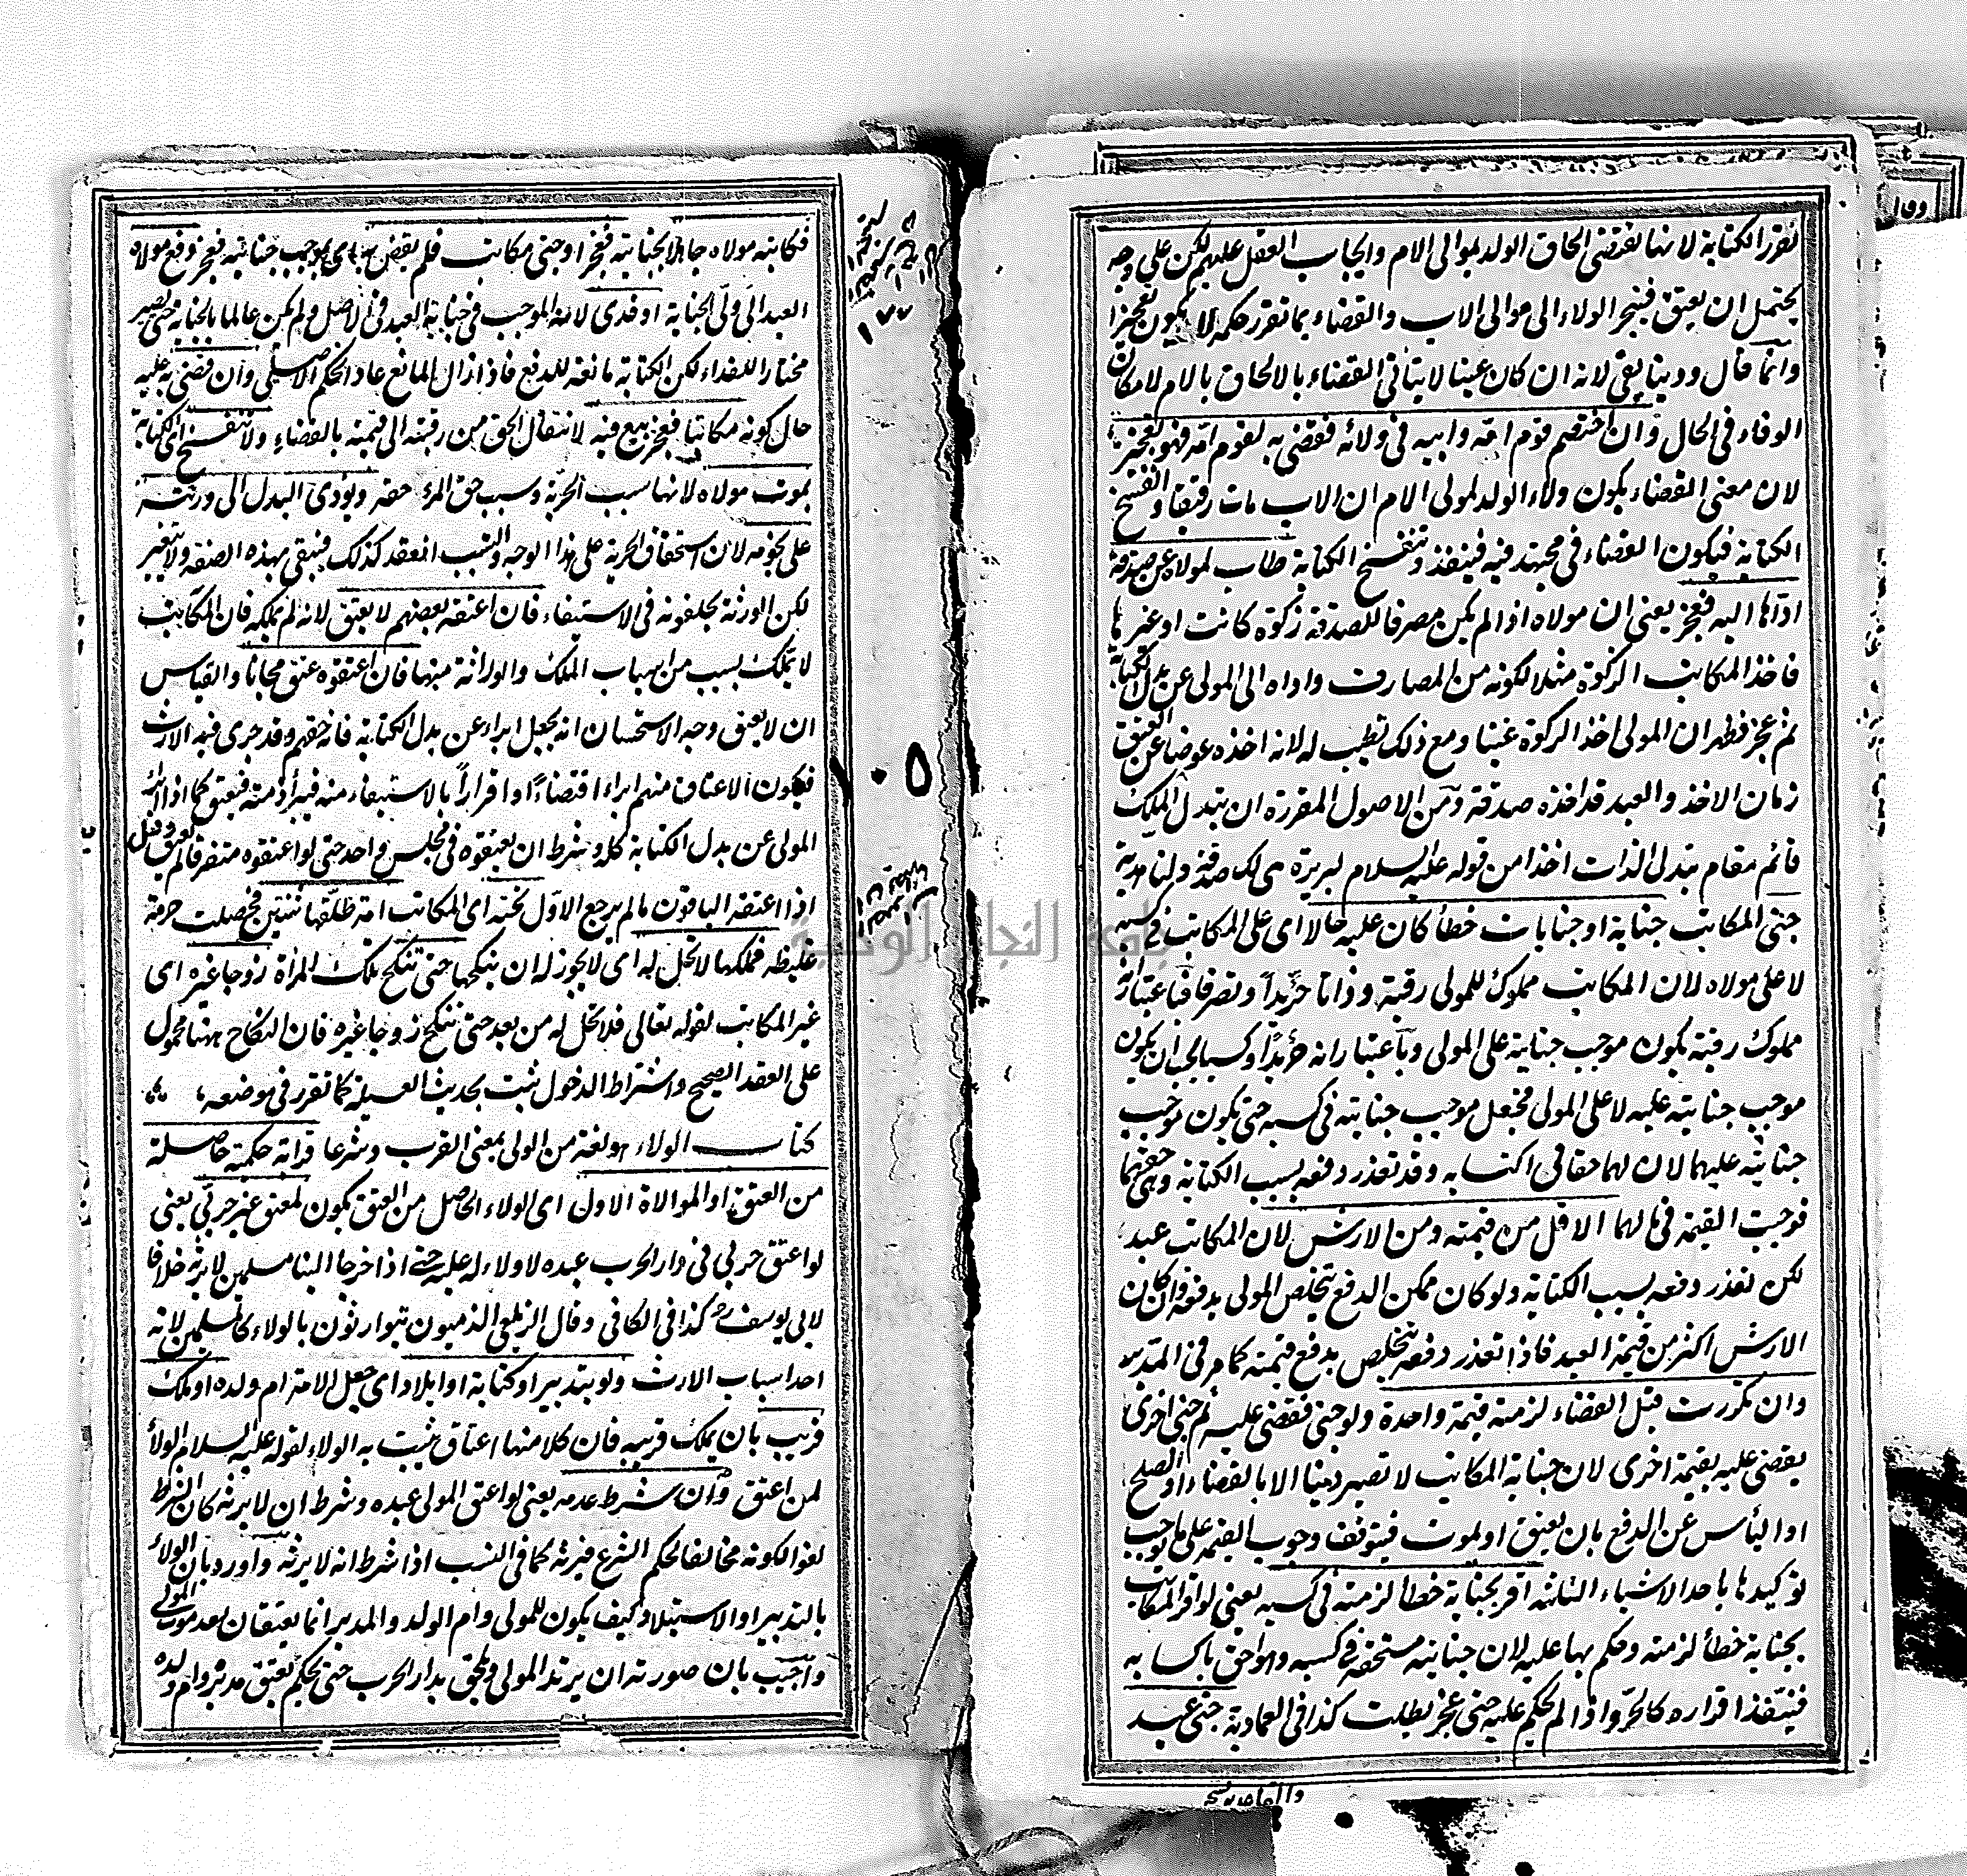 تقرر الكتابة لانها تقتضى الحاق الولد بموالى الام وايجاب العقل عليهم لكن على وجه
يحتمل ان يعتق فينجر الولاء الى موالى الاب والقضاء بما تقرر حكمه لا يكون تعجيزا
وانما قال ودينا يفى لانه ان كان عينا لا يتأتى القضاء بالالحاق بالام لامكان
الوفاء فى الحال وان اختصم قوم امه وابيه فى ولائه فقضى به لقوم امه فهو تعجيز
لان معنى القضاء بكون ولاء الولد لمولى الام ان الاب مات رقيقا وانفسخ
الكتابة فيكون القضاء فى مجتهد فيه فينفذ وتنفسخ الكتابة طاب لمولاه عن صدقة
اداها اليه فعجز يعنى ان مولاه اذا لم يكن مصرفا للصدقة زكوة كانت او غيرها
فاخذ المكاتب الزكوة مثلا لكونه من المصارف واداه الى المولى عن بدل الكتابة
ثم عجز فظهر ان المولى اخذ الزكوة غنيا ومع ذلك تطيب له لانه اخذه عوضا عن العتق
زمان الاخذ والعبد قد اخذه صدقة ومن الاصول المقررة ان تبدل الملك
قائم مقام تبدل الذات اخذا من قوله عليه السلام لبريرة هى لك صدقة ولنا هدية
جنى المكاتب جناية او جنايات خطأ كان عليه حالا اى على المكاتب فى كسبه
لا على مولاه لان المكاتب مملوك للمولى رقبة وذاتا حر يدا وتصرفا فباعتبار انه
مملوك رقبة يكون موجب جنايته على المولى وباعتبار انه حر يدا وكسبا يجب ان يكون
موجب جنايته عليه لا على المولى فيجعل موجب جنايته فى كسبه حتى يكون موجب
جنايته عليهما لان لهما حقا فى اكتسابه وقد تعذر دفعه بسبب الكتابة وهى حقهما
فوجبت القيمة فى مالهما الاقل من قيمته ومن الارش لان المكاتب عبد
لكن تعذر دفعه بسبب الكتابة ولو كان ممكن الدفع يتخلص المولى بدفعه وان كان
الارش اكثر من قيمة العبد فاذا تعذر دفعه يتخلص بدفع قيمته كما مر فى المدبر
وان تكررت قبل القضاء لزمته قيمة واحدة ولو جنى فقضى عليه ثم جنى اخرى
يقضى عليه بقيمة اخرى لان جناية المكاتب لا تصير دينا الا بالقضاء او الصلح
او اليأس عن الدفع بان يعتق او يموت فيتوقف وجوب القيمة على ما يوجب
توكيدها باحد الاشياء الثلثة اقر بجناية خطأ لزمته فى كسبه يعنى لو اقر المكاتب
بجناية خطأ لزمته وحكم بها عليه لان جنايته مستحقة فى كسبه وهو احق باكسابه
فينفذ اقراره كالحر واذا لم يحكم عليه حتى عجز بطلت كذا فى العمادية جنى عبد
فكاتبه مولاه جاهلا بجنايته فعجز او جنى مكاتب فلم يقض بموجب جنايته فعجز دفع مولاه
العبد الى ولى الجناية او فدى لانه الموجب فى جناية العبد فى الاصل ولم يكن عالما بالجناية حتى يصير
مختارا للفداء لكن الكتابة مانعة للدفع فاذا زال المانع عاد الحكم الاصلى وان قضى به عليه
حال كونه مكاتبا فعجز بيع فيه لانتقال الحق من رقبته الى قيمته بالقضاء ولا تنفسخ اى الكتابة
بموت مولاه لانها سبب الحرية وسبب حق المرء حقه ويؤدى البدل الى ورثته
على نجومه لان استحقاق الحرية على هذا الوجه والسبب انعقد كذلك فيبقى بهذه الصفة ولا يتغير
لكن الورثة يخلفونه فى الاستيفاء فان اعتقه بعضهم لا يعتق لانه لم يملكه فان المكاتب
لا يملك بسبب من اسباب الملك والوراثة منها فان اعتقوه عتق مجانا والقياس
ان لا يعتق وجه الاستحسان انه يجعل ابراء عن بدل الكتابة فانه حقهم وقد جرى فيه الارث
فيكون الاعتاق منهم ابراء اقتضاء او اقرارا بالاستيفاء منه فيبرأ ذمته فيعتق كما اذا ابرأه
المولى عن بدل الكتابة كلا وشرط ان يعتقوه فى مجلس واحد حتى لو اعتقوه متفرقا لم يعتق وقيل
اذا اعتقه الباقون ما لم يرجع الاول تحته اى المكاتب امة طلقها ثنتين فحصلت حرمة
غليظة فملكها لا تحل له اى لا يجوز له ان ينكحها حتى تنكح تلك المرأة زوجا غيره اى
غير المكاتب لقوله تعالى فلا تحل له من بعد حتى تنكح زوجا غيره فان النكاح ههنا محمول
على العقد الصحيح واشتراط الدخول ثبت بحديث العسيلة كما تقرر فى موضعه
كتاب الولاء هو لغة من الولى بمعنى القرب وشرعا قرابة حكمية حاصلة
من العتق او الموالاة الاول اى الولاء الحاصل من العتق يكون لمعتق غير حربى يعنى
لو اعتق حربى فى دار الحرب عبده لا ولاء له عليه حتى اذا خرجا الينا مسلمين لا يرثه خلافا
لابى يوسف كذا فى الكافى وقال الزيلعى الذميون يتوارثون بالولاء كالمسلمين لانه
احد اسباب الارث ولو بتدبير او كتابة او ايلاد اى جعل الامة ام ولده او ملك
قريب بان يملك قريبه فان كلا منها اعتاق يثبت به الولاء لقوله عليه السلام الولاء
لمن اعتق وان شرط عدمه يعنى لو اعتق المولى عبده وشرط ان لا يرثه كان الشرط
لغوا لكونه مخالفا لحكم الشرع فيرثه كما فى النسب اذا شرط انه لا يرثه واورد بان الولاء
بالتدبير او الاستيلاد كيف يكون للمولى وام الولد والمدبر انما يعتقان بعد موت المولى
واجيب بان صورته ان يرتد المولى ويلحق بدار الحرب حتى يحكم بعتق مدبره وام ولده
١٧٧
١٠٥
جامعة النجاح الوطنية